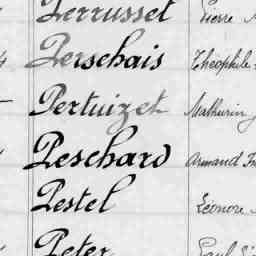 Perrusset Pierre
Perschais Théophile
Pertuizet Mathurin
Peschard Armand
Pestel Léonore
Peter Paul